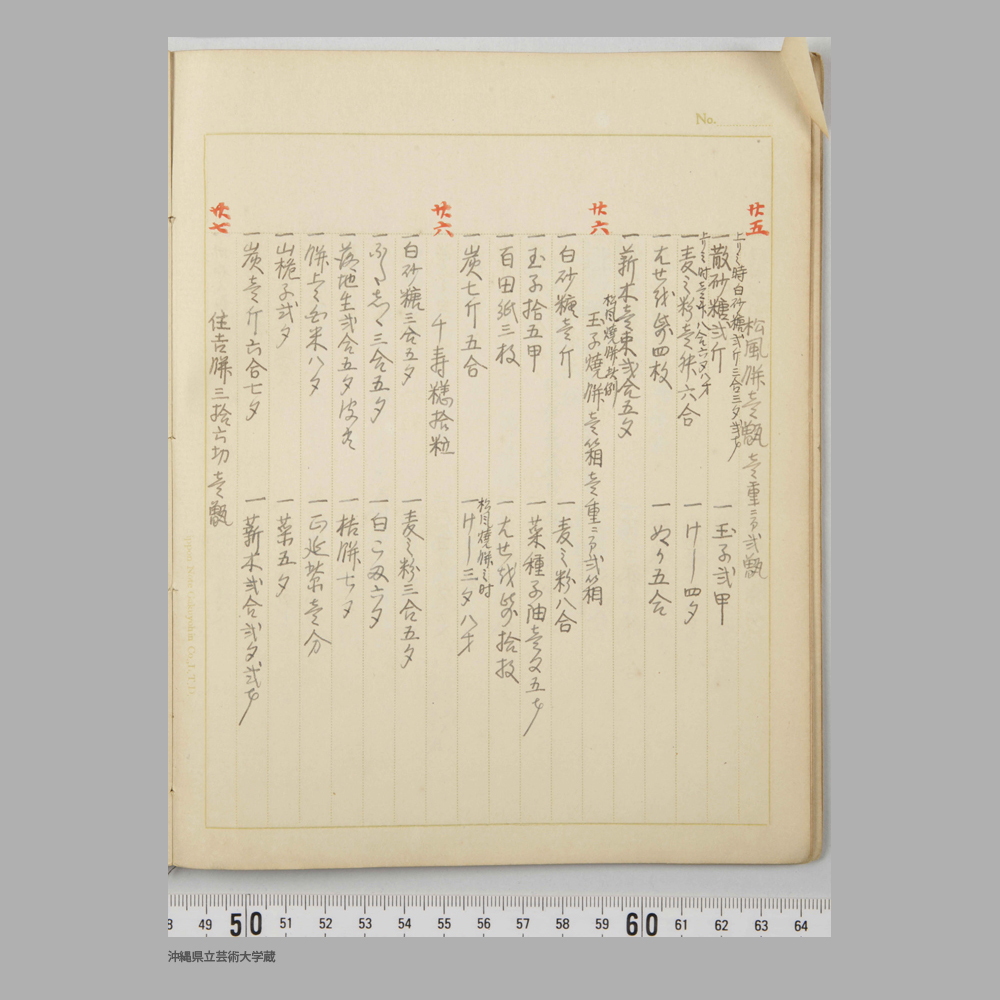 No.
廿五
松風餅壱甑 壱重ニ付弐甑
上り之時白砂糖弐斤三合三夕弐才
一 散砂糖弐斤
一 玉子弐甲
上り之時壱斤八合六夕八才
一 麦之粉壱升六合
一 けし四夕
一 はせ紙四枚
一 ぬか五合
一 薪木壱束弐合五夕
廿六
玉子焼餅壱箱 壱重ニ付弐箱
一 白砂糖壱斤
一 麦之粉八合
一 玉子拾五甲
一 菜種子油壱合五才
一 百田紙三枚
一 はせ紙拾枚
一 炭七斤五合
松月焼餅之時
一 けし三夕八才
廿六
千寿糕拾粒
一 白砂糖三合五夕
一 麦之粉三合五夕
三合五夕
六夕
一 落地生弐合五夕
一 桔餅七夕
一 餅上白米八夕
一 正延紫壱分
一 山桅子弐夕
一 葉五夕
一 炭壱斤六合七夕
一 薪木弐合弐夕弐才
廿七
住吉餅三拾六切壱甑
49 50 51 52 53 54 55 56 57 58 59 60 61 62 63 64
沖縄県立芸術大学蔵